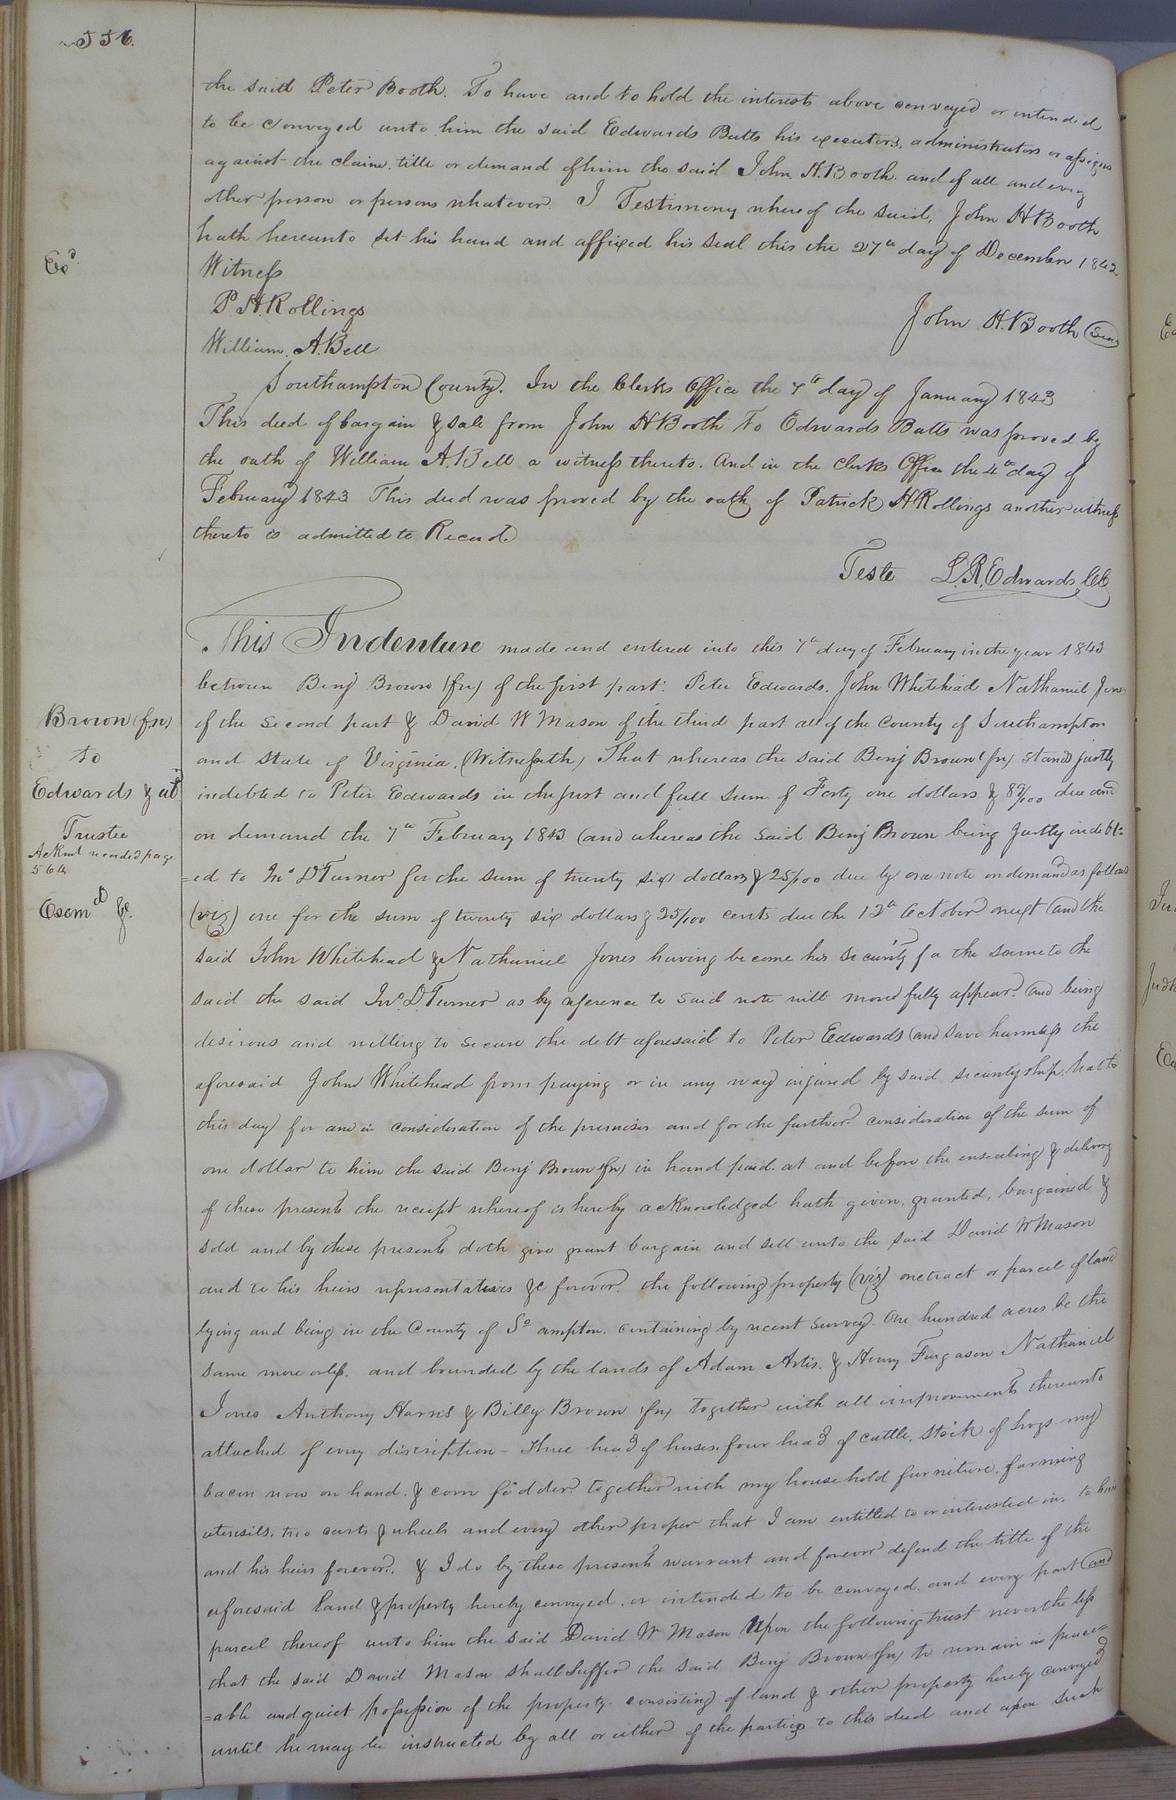 556.
the said Peter Booth. To have and to hold the interests above conveyed or intended
to be conveyed unto him the said Edwards Butts his executors, administrators or assigns
against the claim, title or demand of him the said John H. Booth. and of all and every
other person or persons whatever. I Testimony whereof the said, John H Booth
hath hereunto set his hand and affixed his seal this the 27th day of December 1842
Exd
Witness
P. H. Rollings
John H. Booth Seal
William. A. Bell
Southampton County. In the Clerks Office the 7th day of January 1843
This deed of bargain & sale from John H Booth to Edwards Butts was proved by
the oath of William A. Bell a witness thereto. And in the Clerks Office the 4th day of
February 1843 This deed was proved by the oath of Patrick H Rollings another witness
thereto & admitted to Record
Teste L. R. Edwards, Clk
This Indenture made and entered into this 7th day of February in the year 1843
between Benj Brown (fn) of the first part: Peter Edwards. John Whitehead Nathaniel Jones
of the second part & David W Mason of the third part all of the County of Southampton
and State of Virginia. (Witnesseth) That whereas the said Benj Brown (fn) stands justly
indebted to Peter Edwards in the just and full sum of Forty one dollars & 87/100 due and
on demand the 7th February 1843 (and whereas the said Benj Brown being justly indebt-
=ed to Jno D Turner for the sum of twenty six dollars & 25/100 due by one note on demand as follows
(viz) one for the sum of twenty six dollars & 25/100 cents due the 12th October next (and the
said John Whitehead & Nathaniel Jones having become his security for the same to the
said the said Jno. D. Turner as by reference to said note will more fully appear. and being
desirous and willing to secure the debt aforesaid to Peter Edwards (and save harmless the
aforesaid John Whitehead from paying or in any way injured by said securityship, hath
this day for and in consideration of the premises and for the further consideration of the sum of
one dollar to him the said Benj Brown (fn) in hand paid. at and before the ensealing & delivery
of these presents the receipt whereof is hereby acknowledged hath given, granted, bargained &
sold and by these presents doth give grant bargain and sell unto the said David W Mason
and to his heirs representatives &c forever. the following property (viz) one tract or parcel of land
lying and being in the County of So ampton. containing by recent survey. One hundred acres be the
same more or less, and bounded by the lands of Adam Artis. & Henry Furgason Nathaniel
Jones Anthony Harris & Billy Brown (fn) together with all improvements thereunto
attached of every discription - Three head of horses, four head of cattle, stock of hogs my
bacon now on hand. & corn fodder together with my household furniture, farming
utensils, two carts & wheels and every other proper that I am entitled to or interested in, to him
and his heirs forever. & I do by these presents warrant and forever defend the title of the
aforesaid land & property hereby conveyed. or intended to be conveyed. and every part and
parcel thereof unto him the said David W Mason Upon the following trust never the less
that the said David Mason shall suffer the said Benj Brown (fn) to remain in peace=
=able and quiet possession of the property. consisting of land & other property hereby conveyed
until he may be instructed by all or either of the parties to this deed and upon such
Brown (fn)
to
Edwards & al
Trustee
Ackmt recorded page
564
Exemd &c.